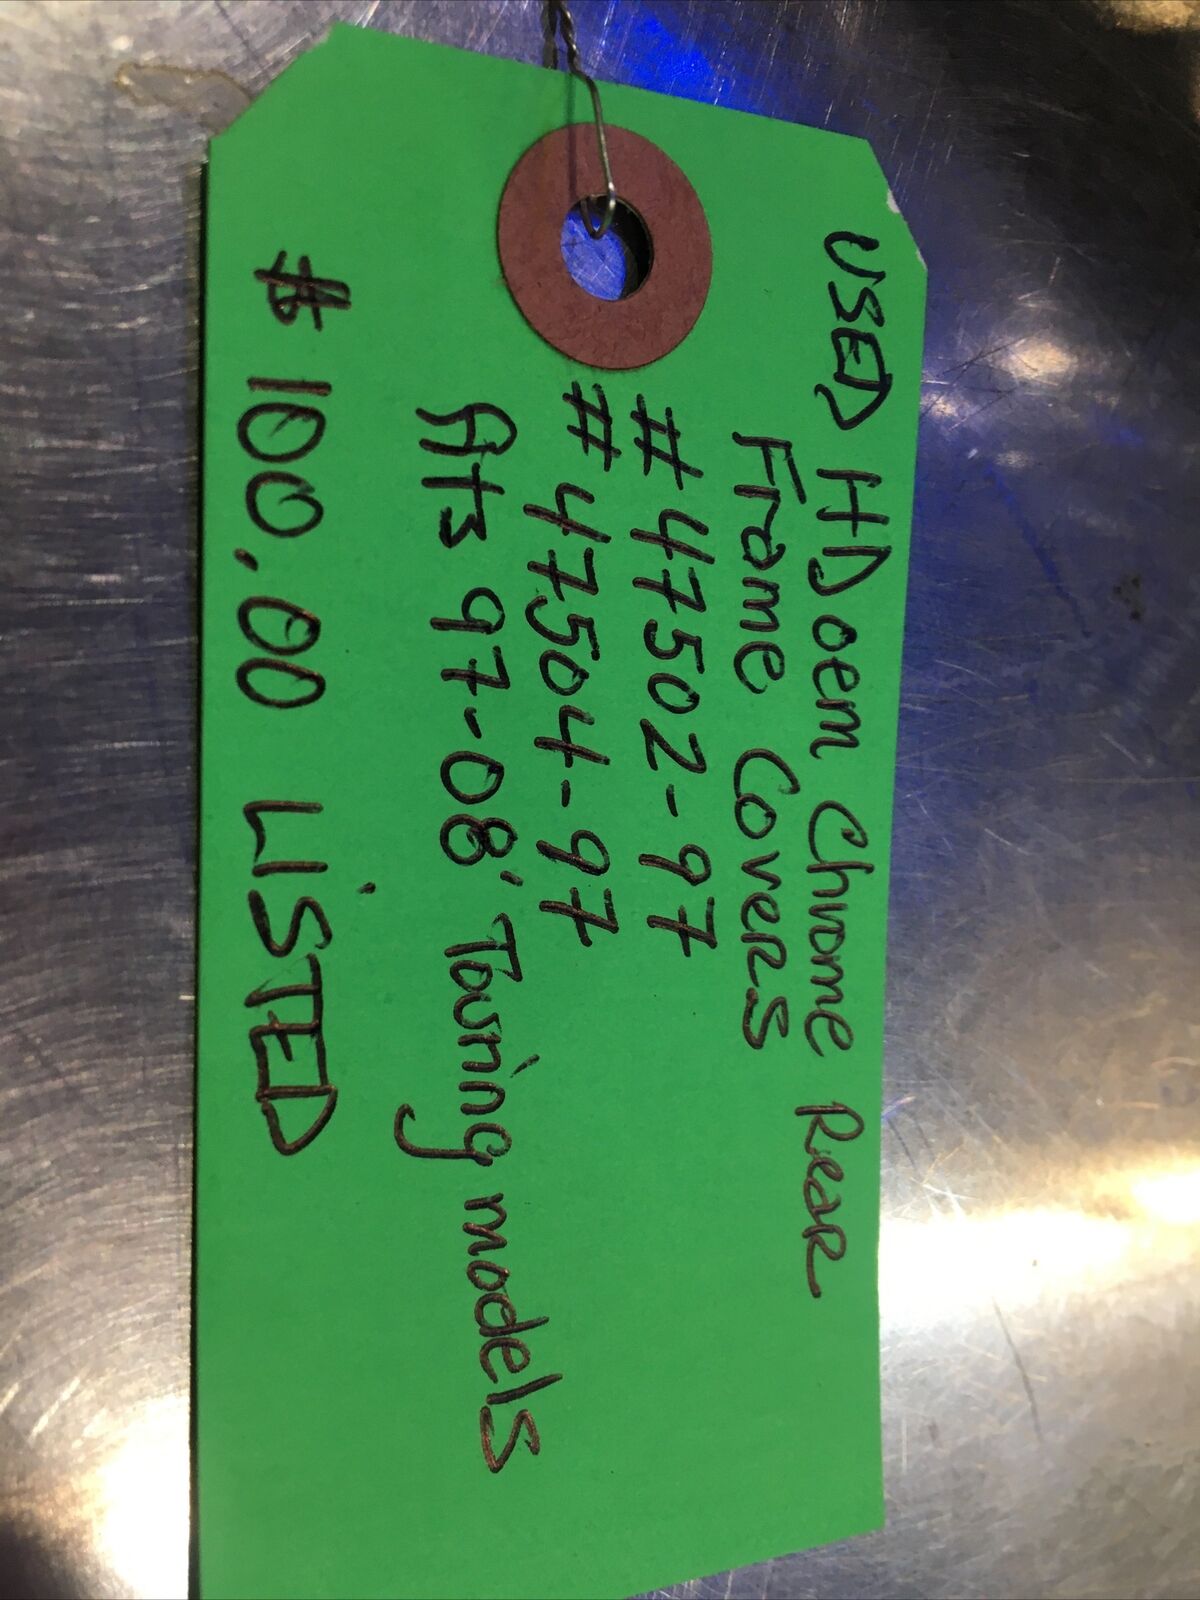 USED HD oem Chrome Rear
Frame Covers
#47502-97
#47504-97
fits 97-08' Touring models
$100.00 LiSTED